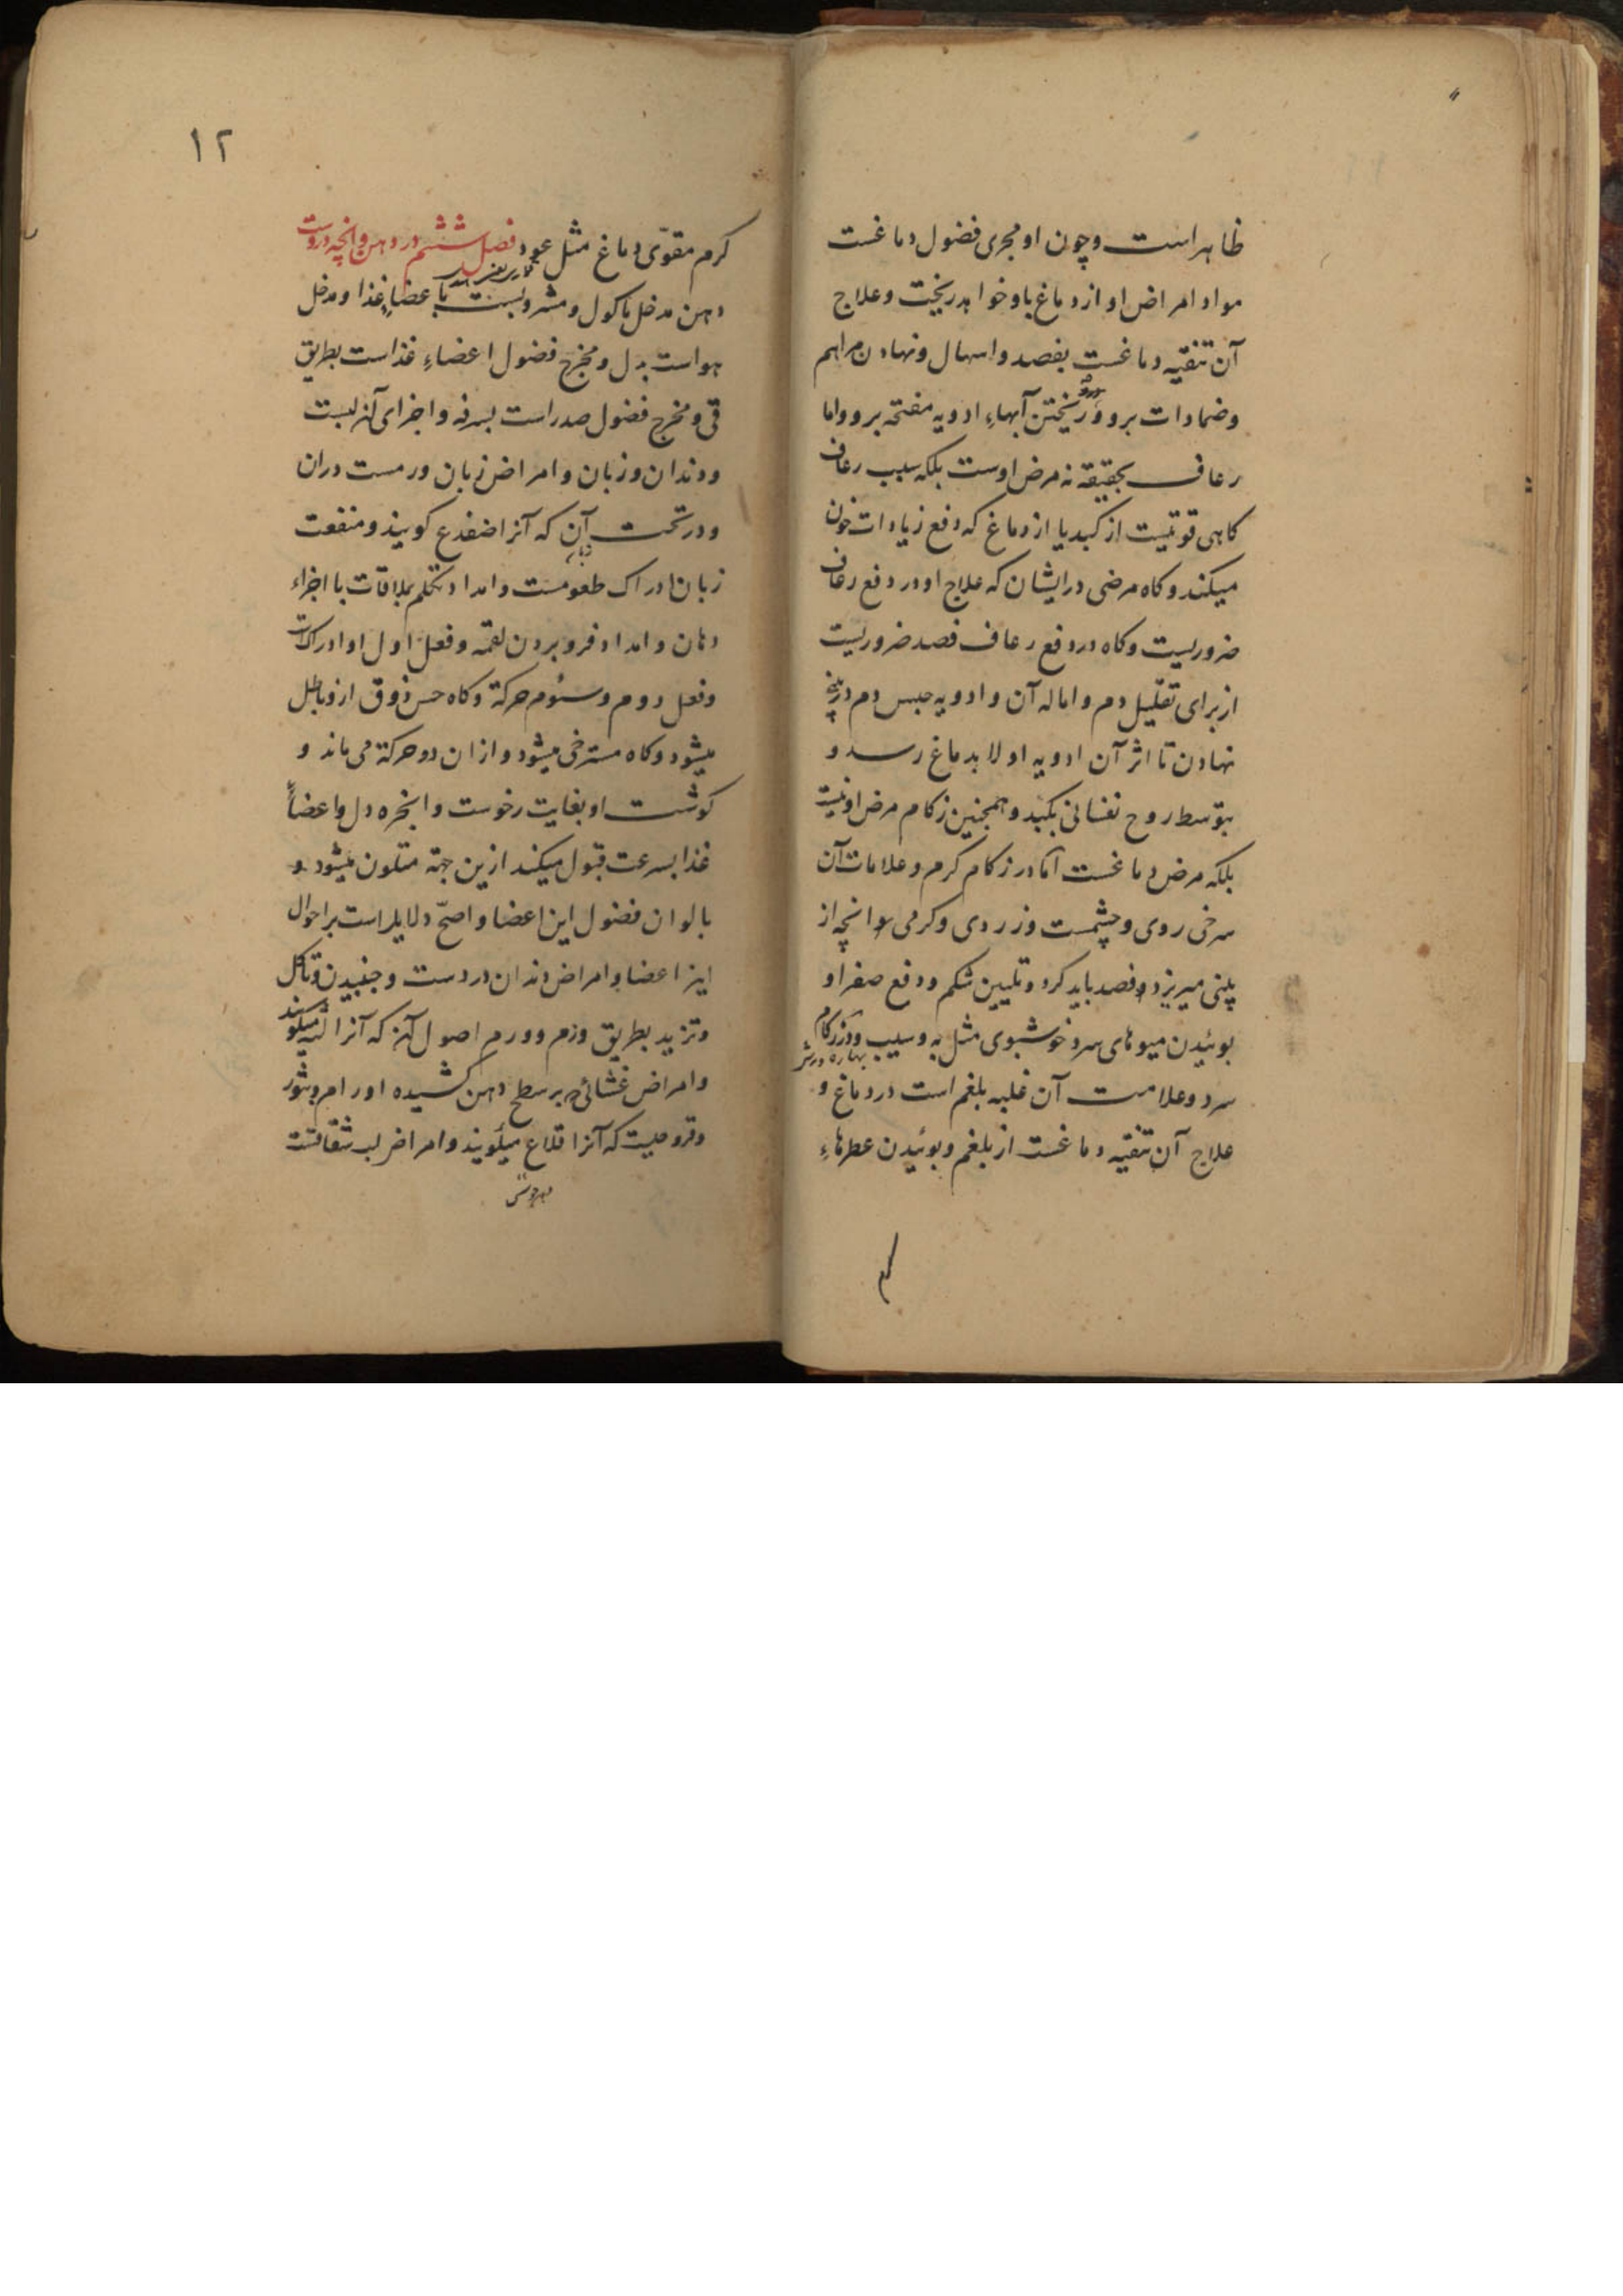 ظاهر است و چون او مجری فضول دماغست
مواد امراض او از دماغ باو خواهد ریخت و علاج
آن تنقیه دماغست بفصد و اسهال و نهادن مراهم
و ضمادات برو و ریختن آبهاءِ ادویه مفتحه برو و اما
رعاف بحقیقة نه مرض اوست بلکه سبب رعاف
کاهی قوتیست از کبد یا از دماغ که دفع زیادات خون
میکند و کاه مرضی در ایشان که علاج او در دفع رعاف
ضروریست و کاه در دفع رعاف فصد ضروریست
از برای تقلیل دم و اماله آن و ادویه حبس دم در بینی
نهادن تا اثر آن ادویه اولا بدماغ رسد و
بتوسط روح نفسانی بکبد و همچنین زکام مرض او نیست
بلکه مرض دماغست اما در زکام کرم و علامات آن
سرخی روی و چشمست و زردی و کرمی انچه از
بینی میریزد و فصد باید کرد و تلیین شکم و دفع صفرا و
بوئیدن میوهای سرد خوشبوی مثل به و سیب و در زکام
سرد و علامت آن غلبه بلغم است در دماغ و
علاج آن تنقیه دماغست از بلغم و بوئیدن عطرهاءِ
۱۲
کرم مقوّی دماغ مثل عود فصل ششم در دهن و انچه دروست
دهن مدخل ماکول و مشروبست باعضاءِ غذا و مدخل
هواست بدل و مخرج فضول اعضاءِ غذاست بطریق
قی و مخرج فضول صدر است بسرفه و اجزای آن لبست
و دندان و زبان و امراض زبان ورمست دران
و در تحت آن که آنرا ضفدع کویند و منفعت
زبان ادراک طعومست و امداد تکلم بملاقات با اجزاء
دهان و امداد فرو بردن لقمه و فعل اول او ادراکست
و فعل دوم و سئوم حرکة و کاه حس ذوق ازو باطل
میشود و کاه مسترخی میشود و ازان دو حرکة می ماند و
کوشت او بغایت رخوست و ابخره دل و اعضاءِ
غذا بسرعت قبول میکند ازین جهة متلون میشود و
بالوان فضول این اعضا و اصحّ دلایل است بر احوال
این اعضا و امراض دندان دردست و جنبیدن و تاکل
و تزید بطریق ورم و ورم اصول آن که آنرا لثه میکویند
و امراض غشائی بر سطح دهن کشیده اورام و بثور
و قروحیست که آنرا قلاع میکویند و امراض لب شقاقست